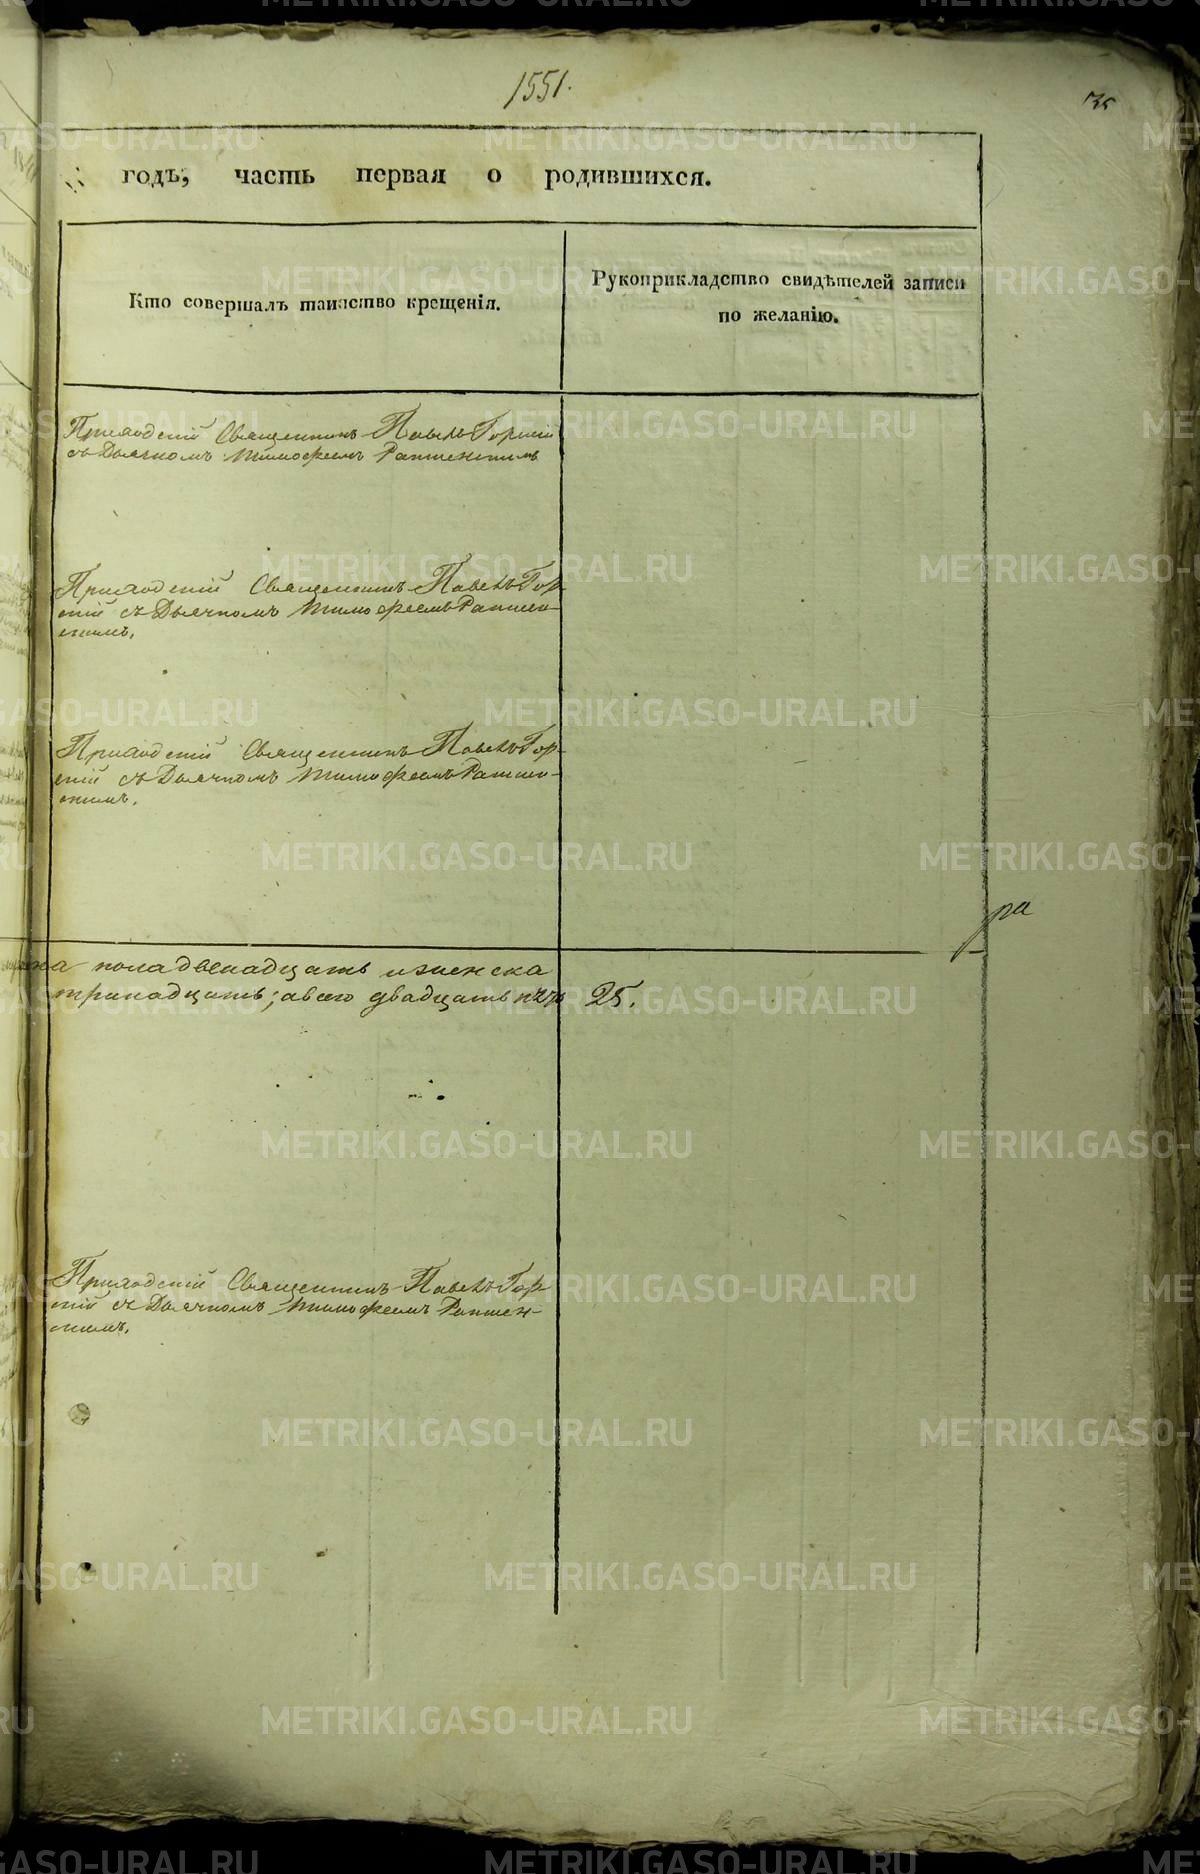 1551.
35
годъ, часть первая о родившихся.
Кто совершалъ таинство крещенія.
Рукоприкладство свидѣтелей записи
по желанію.
Приходскій Священникъ Павелъ Горскій
съ Дьячкомъ Тимофеемъ
Приходскій Священникъ Павелъ Гор-
скій съ Дьячкомъ Тимофеемъ
Приходскій Священникъ Павелъ Гор-
скій съ Дьячкомъ Тимофеемъ
ра
пола двенадцать и женска
тринадцать; а всего двадцать пять 25.
Приходскій Священникъ Павелъ Гор
скій съ Дьячкомъ Тимофеемъ
METRIKI.GASO-URAL.RU